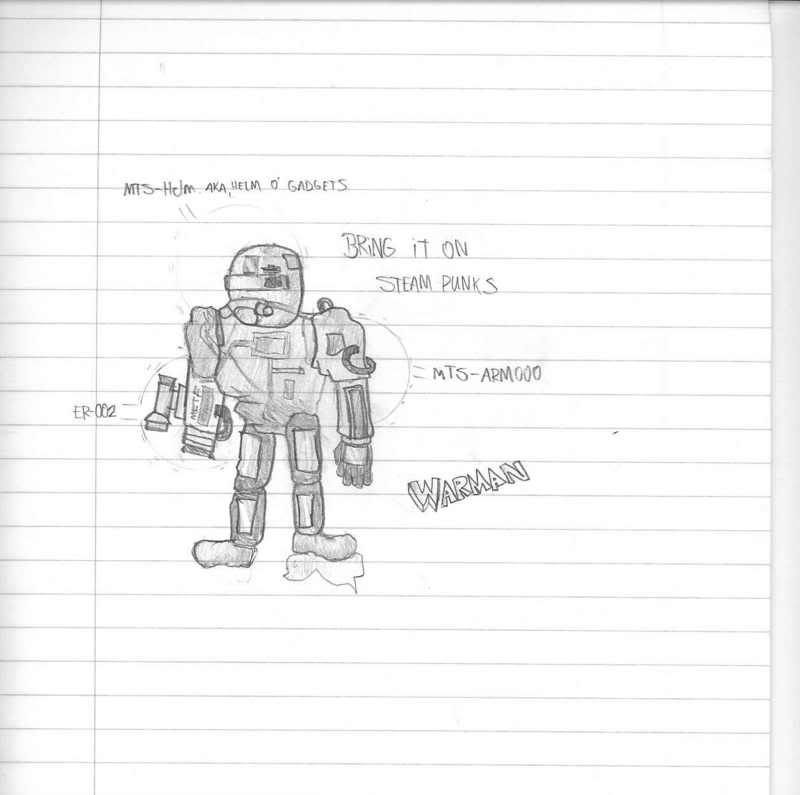 MTS-Helm AKA, HELM O' GADGETS
BRING IT ON
STEAM PUNKS
MTS-ARM000
ER-002
META
WARMAN